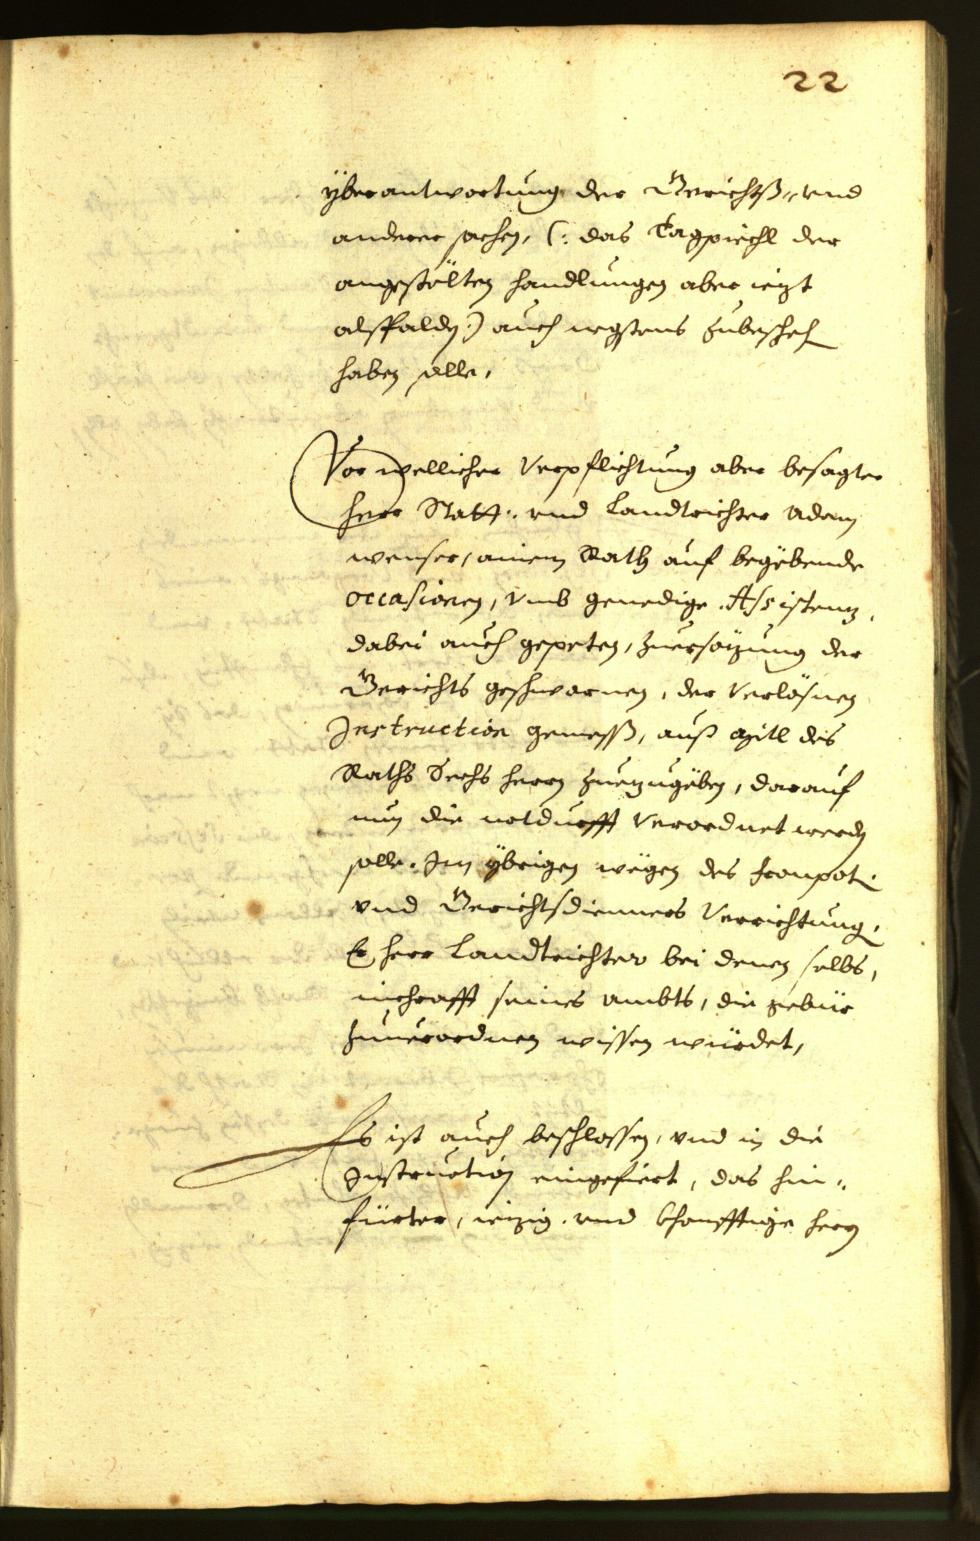 22
ÿberantworttung der Gerichtß: vnd
anderer sachen, (: das Tagpiechl der
angestölten handlungen aber iezt
alßpaldt :) auch negstens zubeschech
haben solle.
Vor wellicher Verpflichtung aber besagter
herr Statt: vnd Landtrichter Adam
wenser, ainem Rath auf begebende
occasionen, vmb genedige Assistenz,
dabei auch gepeten, zuersözung der
Gerichts geschwornen, der verlösnen
Instruction gemeß, auß mitl des
Raths Sechs herrn zuezugeben, darauf
nun die notdurfft verordnet werdn
solle. Im ÿbrigen wegen des fronpot:
vnd Gerichtsdienners Verrichtung,
Er herr Landtrichter bei denen selbs,
incrafft seines ambts, die gebür
zuuerordnen wissen würdet,
Es ist auch beschlossen, vnd in die
Instruction eingefiert, das hin:
fürter, iezig: vnd khonfftige herrn